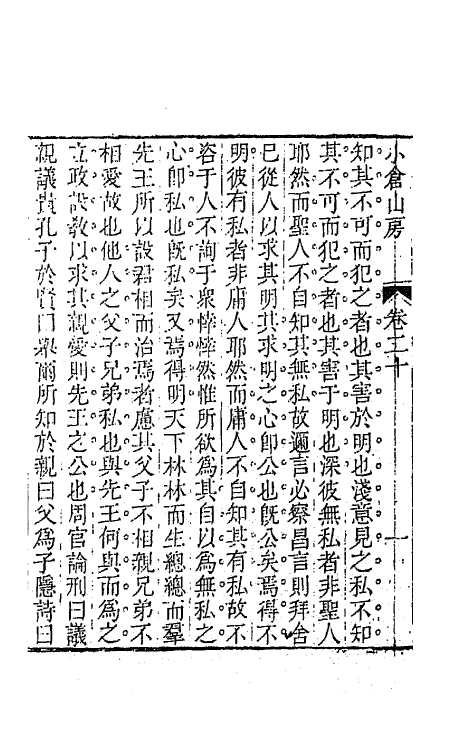 小倉山房 卷二十 一
知其不可而犯之者也其害於明也淺意見之私不知
其不可而犯之者也其害于明也深彼無私者非聖人
耶然而聖人不自知其無私故邇言必察昌言則拜舍
已從人以求其明其求明之心卽公也旣公矣焉得不
明彼有私者非庸人耶然而庸人不自知其有私故不
咨于人不詢于衆悻悻然惟所欲爲其自以爲無私之
心卽私也旣私矣又焉得明天下林林而生總總而羣
先王所以設君相而治焉者慮其父子不相親兄弟不
相愛故也他人之父子兄弟私也與先王何與而爲之
立政設敎以求其親愛則先王之公也周官論刑曰議
親議貴孔子於賢曰舉爾所知於親曰父爲子隱詩曰